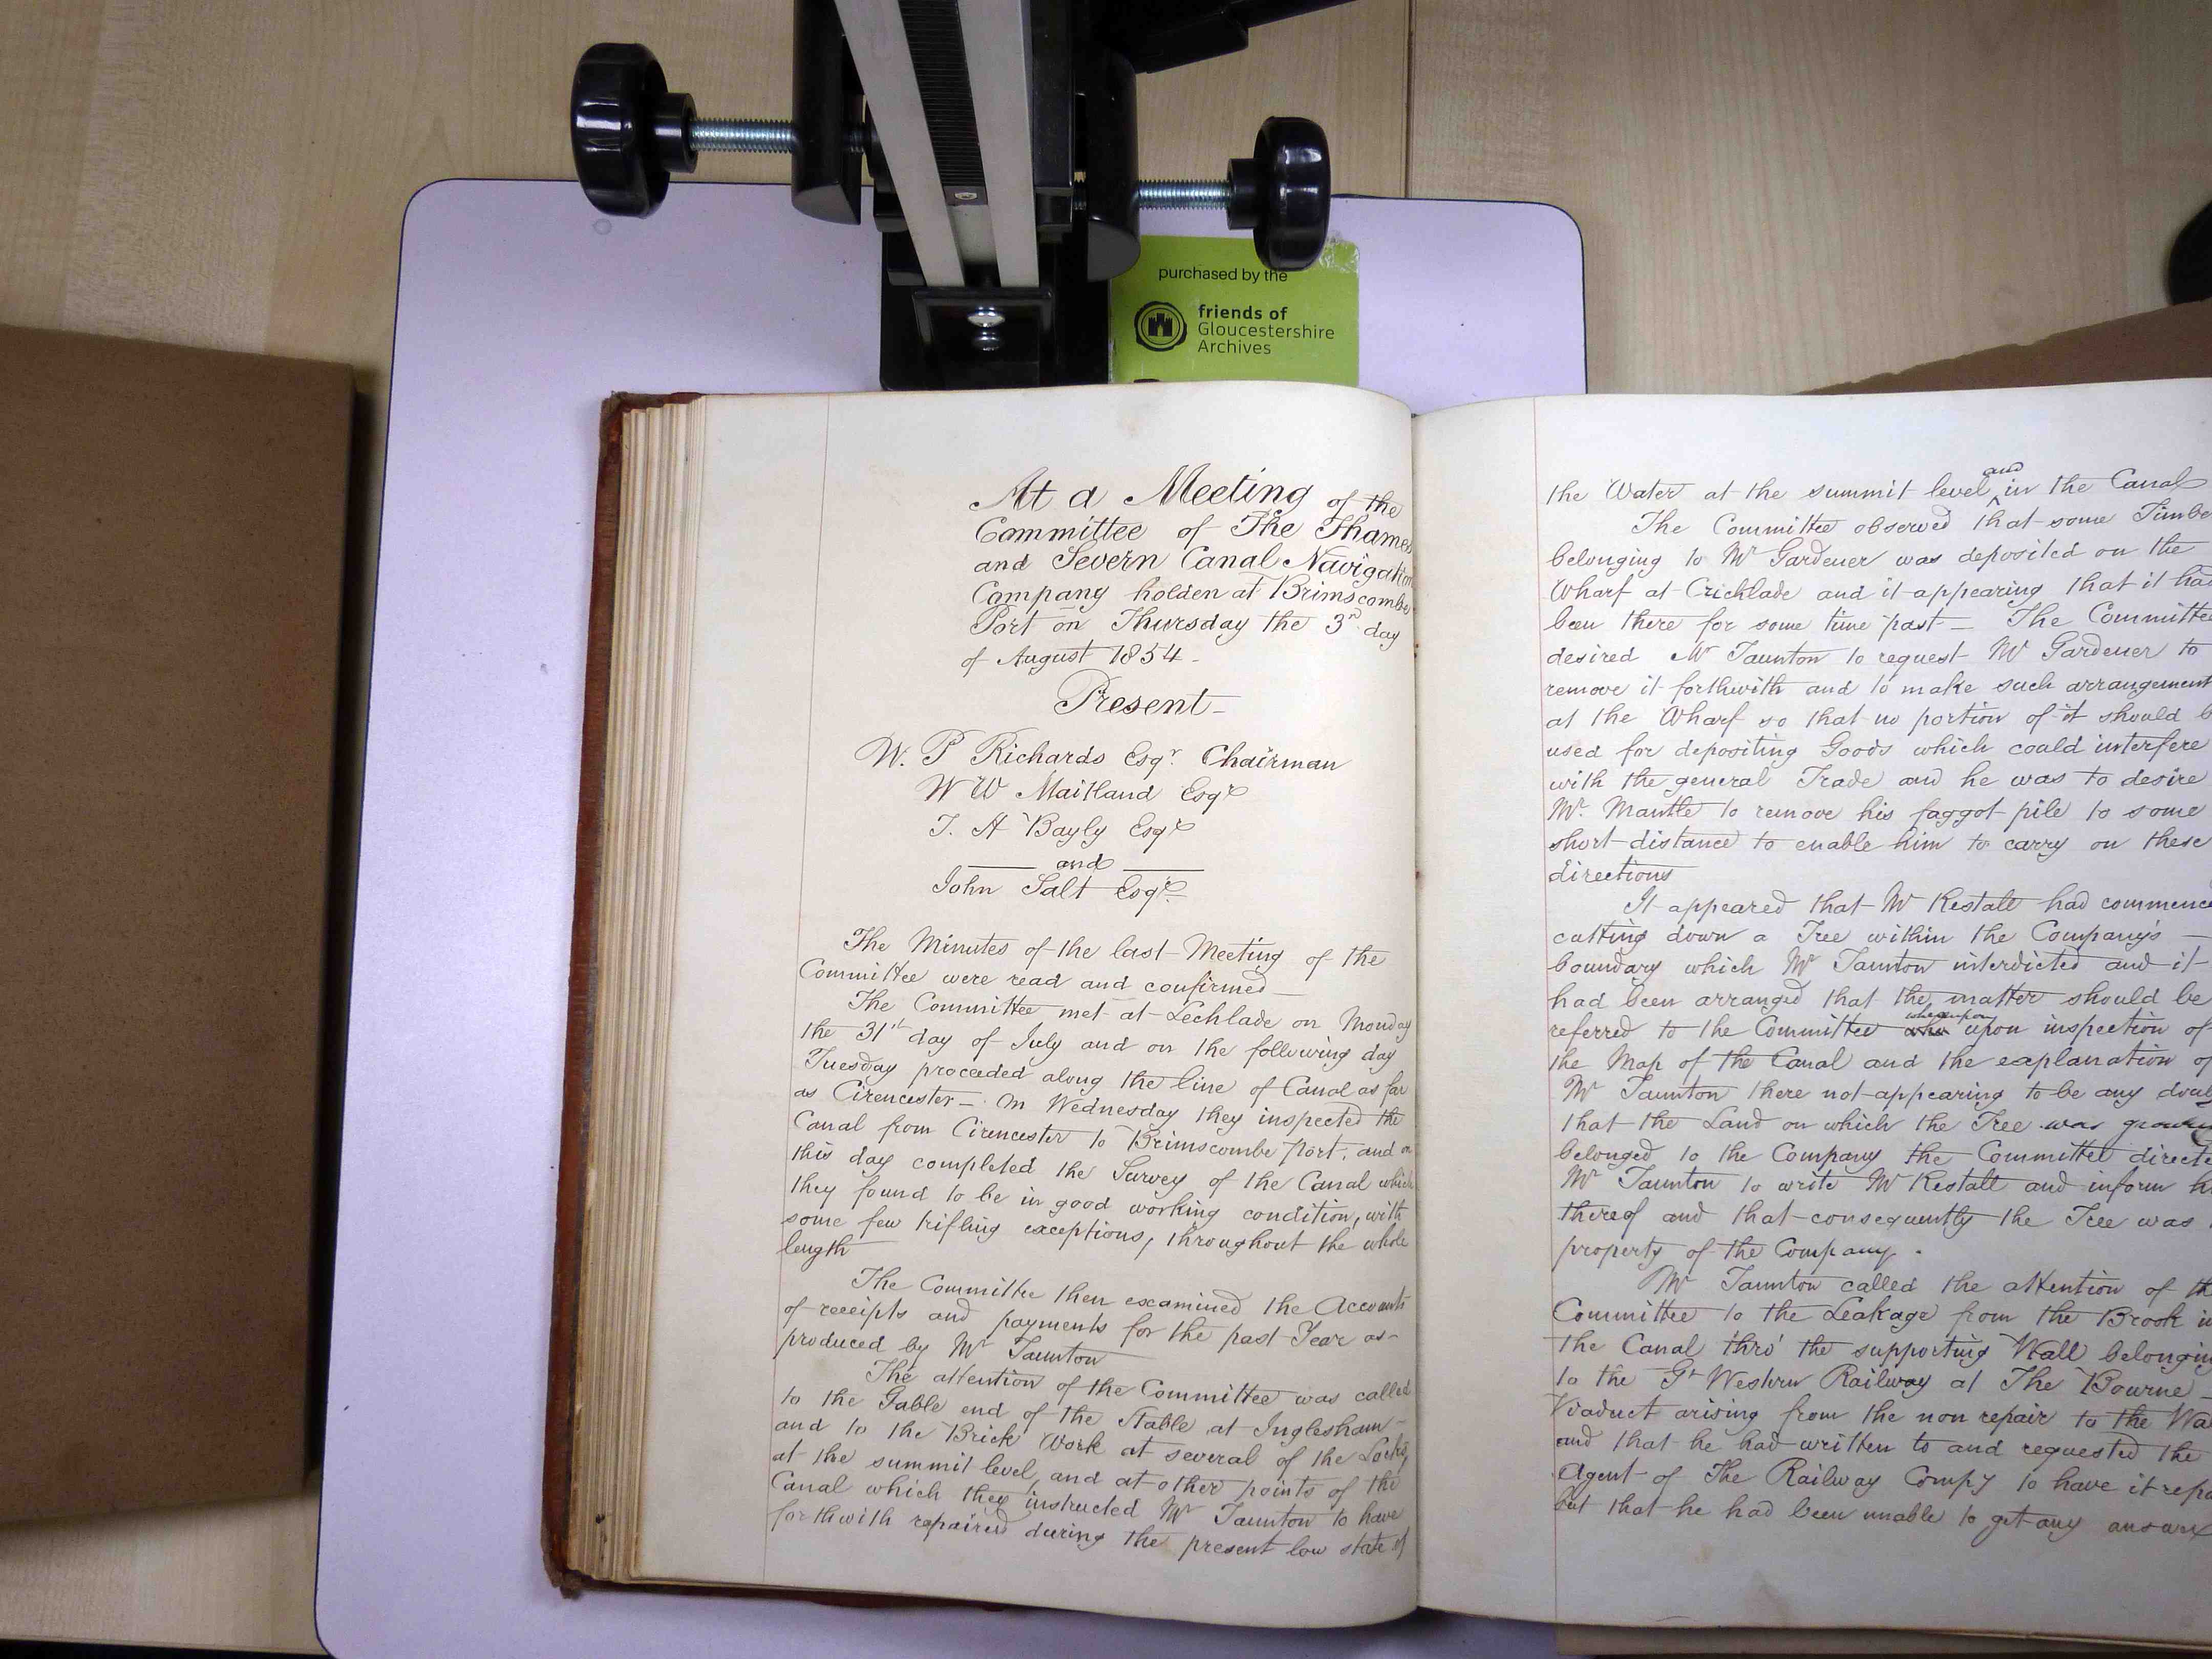 purchased by the
friends of
Gloucestershire
Archives
At a Meeting of the
Committee of The Thames
and Severn Canal Navigation
Company holden at Brimscombe
Port on Thursday the 3rd day
of August 1854 -
Present -
W. P Richards Esqr. Chairman
W W Maitland Esqre
T. H Bayly Esqre
and
John Salt Esqre.
The Minutes of the last Meeting of the
Committee were read and confirmed
The Committee met at Lechlade on Monday
the 31st day of July and on the following day
Tuesday proceeded along the line of Canal as far
as Cirencester - On Wednesday they inspected the
Canal from Cirencester to Brimscombe Port, and on
this day completed the Survey of the Canal which
they found to be in good working condition, with
some few trifling exceptions, throughout the whole
length
The Committee then examined the Accounts
of receipts and payments for the past Year as
produced by Mr Taunton
The attention of the Committee was called
to the Gable end of the Stable at Inglesham
and to the Brick Work at several of the Locks,
at the summit level, and at other points of the
Canal which they instructed Mr Taunton to have
forthwith repaired during the present low state of
the Water at the summit level and in the Canal
The Committee observed that some Timbe
belonging to Mr Gardener was deposited on the
Wharf at Cricklade and it appearing that it had
been there for some time past - The Committee
desired Mr Taunton to request Mr Gardener to
remove it forthwith and to make such arrangement
at the Wharf so that no portion of it should b
used for depositing Goods which could interfere
with the general Trade and he was to desire
Mr. Mantle to remove his faggot pile to some
short distance to enable him to carry on these
directions
It appeared that Mr Restall had commence
cutting down a Tree within the Company's
boundary which Mr Taunton interdicted and it
had been arranged that the matter should be
referred to the Committee who whereupon upon inspection of
the Map of the Canal and the explanation of
Mr Taunton there not appearing to be any doub
that the Land on which the Tree was growing
belonged to the Company the Committee directe
Mr Taunton to write Mr Restall and inform h
thereof and that consequently the Tree was
property of the Company.
Mr Taunton called the attention of th
Committee to the Leakage from the Brook i
the Canal thro' the supporting Wall belonging
to the Gt Western Railway at The Bourne
Viaduct arising from the non repair to the Wa
and that he had written to and requested the
Agent of The Railway Compy to have it repa
but that he had been unable to get any answer